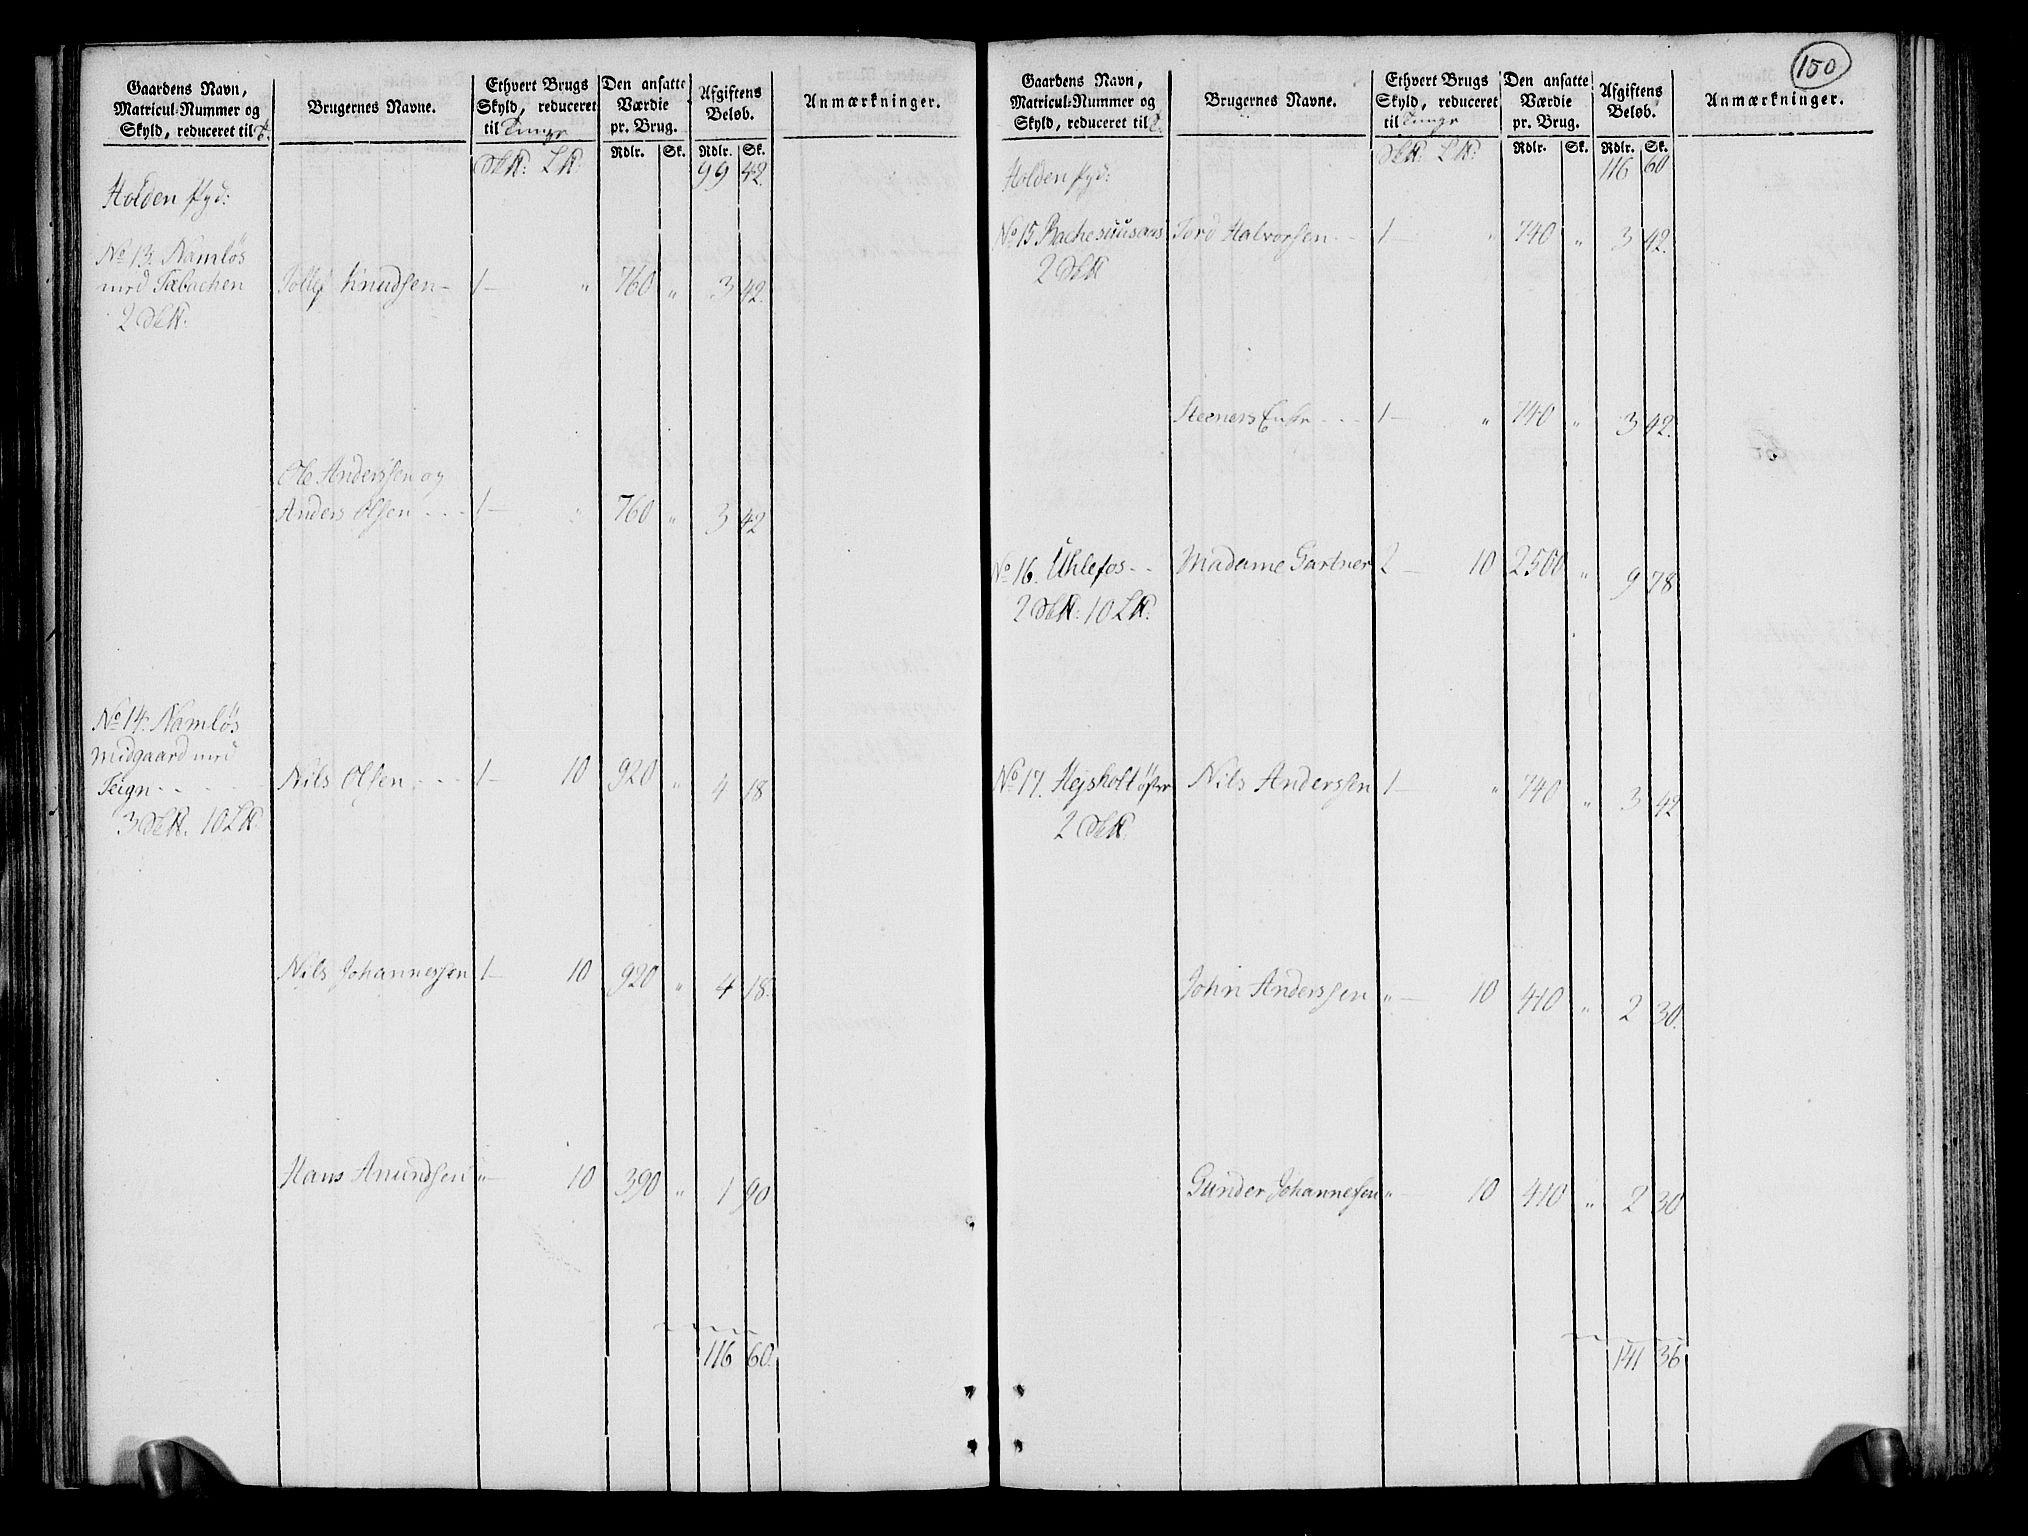 Gaardens Navn,
Matricul-Nummer og
Skyld, reduceret til
Brugernes Navne.
Ethvert Brugs
Skyld, reduceret
til Tunge
Den ansatte
Værdie
pr. Brug.
Afgiftens
Beløb.
Anmærkninger.
Rdlr. Sk. Rdlr. Sk.
99 42.
Holden
No 13. Namløs
Tolløf Knudsen 1 — " 760 " 3 42.
2
Ole Anderssen og
Anders Olsen . . . 1 — " 760 " 3 42
No 14. Namløs
Midgaard
Teign . . .
Nils Olsen . . . 1 — 10 920 " 4 18
3 10
Nils Johannessen 1 — 10 920 " 4 18.
Hans Amundsen " — 10 390 " 1 90
116 60.
150
Gaardens Navn,
Matricul-Nummer og
Skyld, reduceret til
Brugernes Navne.
Ethvert Brugs
Skyld, reduceret
til Tunge
Den ansatte
Værdie
pr. Brug.
Afgiftens
Beløb.
Anmærkninger.
Rdlr. Sk. Rdlr. Sk.
116 60
Holden
No 15 Tord Halvorsen . . 1 — " 740 " 3 42.
2
1 — " 740 " 3 42.
No 16. Uhlefos . . Madame Gartner 2 — 10 2500 " 9 78
2 10
No 17. Hejsholt Nils Anderssen 1 — " 740 " 3 42
2
John Anderssen " — 10 410 " 2 30.
Gunder Johannesen " — 10 410 " 2 30
141 36